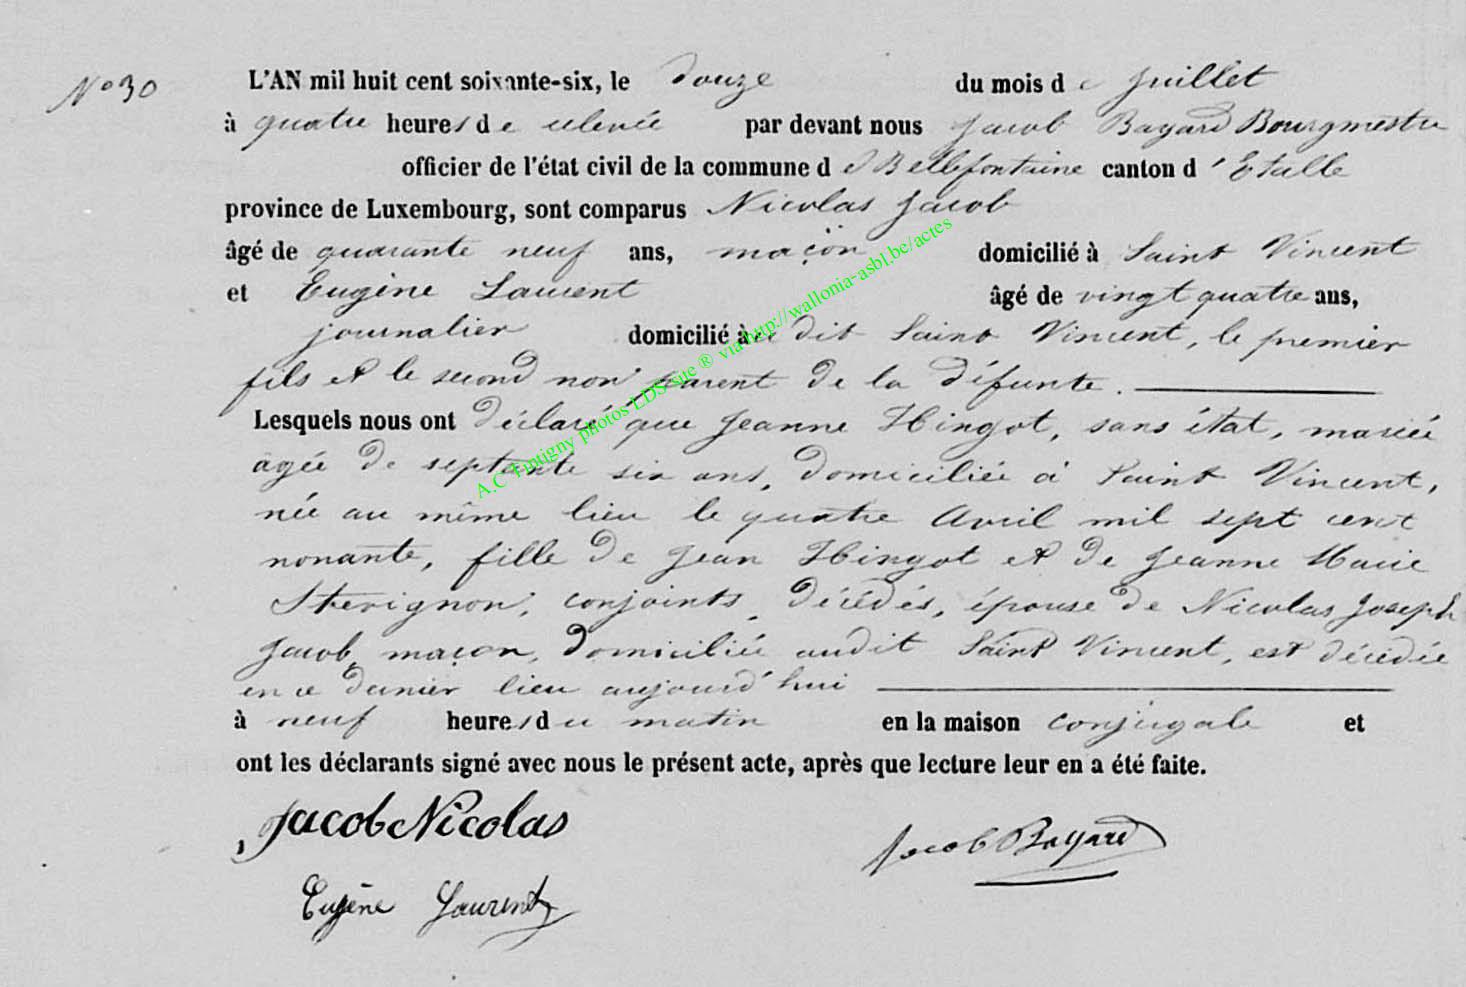 N° 30
L'AN mil huit cent soixante-six, le douze du mois de Juillet
à quatre heures de relevée par devant nous Jacob Bayard Bourgmestre
officier de l'état civil de la commune de Bellefontaine canton d'Etalle
province de Luxembourg, sont comparus Nicolas Jacob
âgé de quarante neuf ans, maçon domicilié à Saint Vincent
et Eugène Laurent âgé de vingt quatre ans,
journalier domicilié au dit Saint Vincent, le premier
fils et le second non parent de la défunte.
Lesquels nous ont déclaré que Jeanne Hingot, sans état, mariée
agée de septante six ans, domiciliée à Saint Vincent,
née au même lieu le quatre Avril mil sept cent
nonante, fille de Jean Hingot et de Jeanne Marie
conjoints, décédés, épouse de Nicolas Joseph
Jacob, maçon, domiciliée audit Saint Vincent, est décédée
en ce dernier lieu aujourd'hui
à neuf heures du matin en la maison conjugale et
ont les déclarants signé avec nous le présent acte, après que lecture leur en a été faite.
Jacob Nicolas
Jacob Bayard
Eugène Laurent
A.C Tintigny photos LDS site ® via http://wallonia-asbl.be/actes